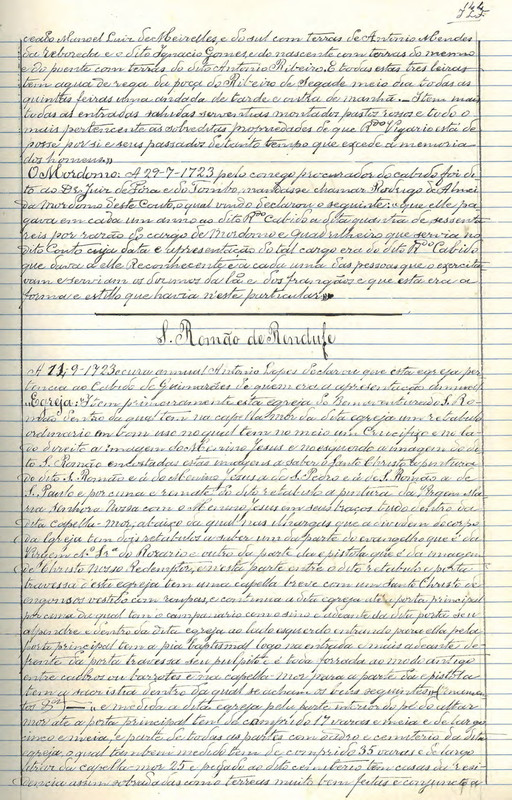 144
725
cedo Manoel Luiz de Meirelles, e do sul com terras de Antonio Mendes
da reboreda e o dito Ignacio Gomes, e do nascente com terras do mesmo
e do puente com terras do dito Antonio Ribeiro. E todas estas tres leiras
tem agua de rega da poça do Ribeiro de Segade meio dia todas as
quintas feiras uma andada de tarde e outra de manhã. Item mais
todas as entradas sahidas serventias montados pastos rocios e tudo o
mais pertencente ás sobreditas propriedades de que o Rdo Vigario está de
posse por si e seus passados de tanto tempo que excede a memoria
dos homens.
O Mordomo: A 29-7-1723 pelo conego procurador do cabido foi di-
to ao Dr. Juiz de Fora e do Tombo, mandasse chamar Rodrigo de Almei-
da Mordomo deste Couto, o qual vindo declarou o seguinte: que elle pa-
gava em cada um anno ao dito Rdo Cabido a dita quantia de sessenta
reis por razão do cargo de Mordomo e Quadrilheiro que servia no
dito Couto cuja data e apresentação do tal cargo era do dito Rdo Cabido
que dava a elle Reconhecente e a cada uma das pessoas que o exercita-
vam e serviam os dizimos da lã e dos frangãos e que esta era a
forma e estillo que havia n'este particular.
S. Romão de Rendufe
A 11-9-1723 o cura annual Antonio Lopes declarou que esta egreja per-
tencia ao Cabido de Guimarães de quem era a apresentação annual.
Egreja: Item primeiramente esta egreja do Bemaventurado S. Ro-
mão dentro da qual tem na capella mor da dita egreja um retabulo
ordinario no qual tem no meio um Crucifixo e no la-
do direito a imagem do Menino Jesus e no esquerdo a imagem do di-
to S. Romão
do dito S. Romão e a do Menino Jesus a de S. Pedro e a de S. Romão a de
S. Paulo e por cima e remate do dito retabulo a pintura da Virgem Ma-
ria Senhora Nossa com o Menino Jesus em seus braços tudo dentro da
dita capella-mor, abaixo da qual nas ilhargas que a dividem do corpo
da Egreja tem dois retabulos a saber um da parte do evangelho que é da
Virgem N.ª Sr.ª do Rosario e outro da parte da epistola que é da imagem
de Christo Nosso Redemptor, e n'esta parte entre o dito retabulo e porta
travessa d'esta egreja tem uma capella breve com um Santo Christo de
vestido com roupas, e continua a dita egreja até á porta principal
por cima da qual tem o campanario com sino e adiante da dita porta seu
alpendre e dentro da dita egreja ao lado esquerdo entrando para ella pela
porta principal tem a pia baptismal logo na entrada e mais adeante de-
fronte da porta travessa seu pulpito e é toda forrada ao modo antigo
entre caibros ou barrotes e na capella mor para a parte da epistola
tem a sacristia dentro da qual se acham os bens seguintes
e medida a dita egreja pela parte interior do pé do altar
mor até a porta principal tem de comprido 17 varas e meia e de largo
cinco e meia, e parte de todas as partes com o adro e cemiterio da dita
egreja, o qual tambem medido tem de comprido 35 varas e de largo
atraz da capella-mor 25 e pegado ao dito cemiterio tem casas da resi-
dencia assim sobradadas como terreas muito bem feitas e conjuncto a